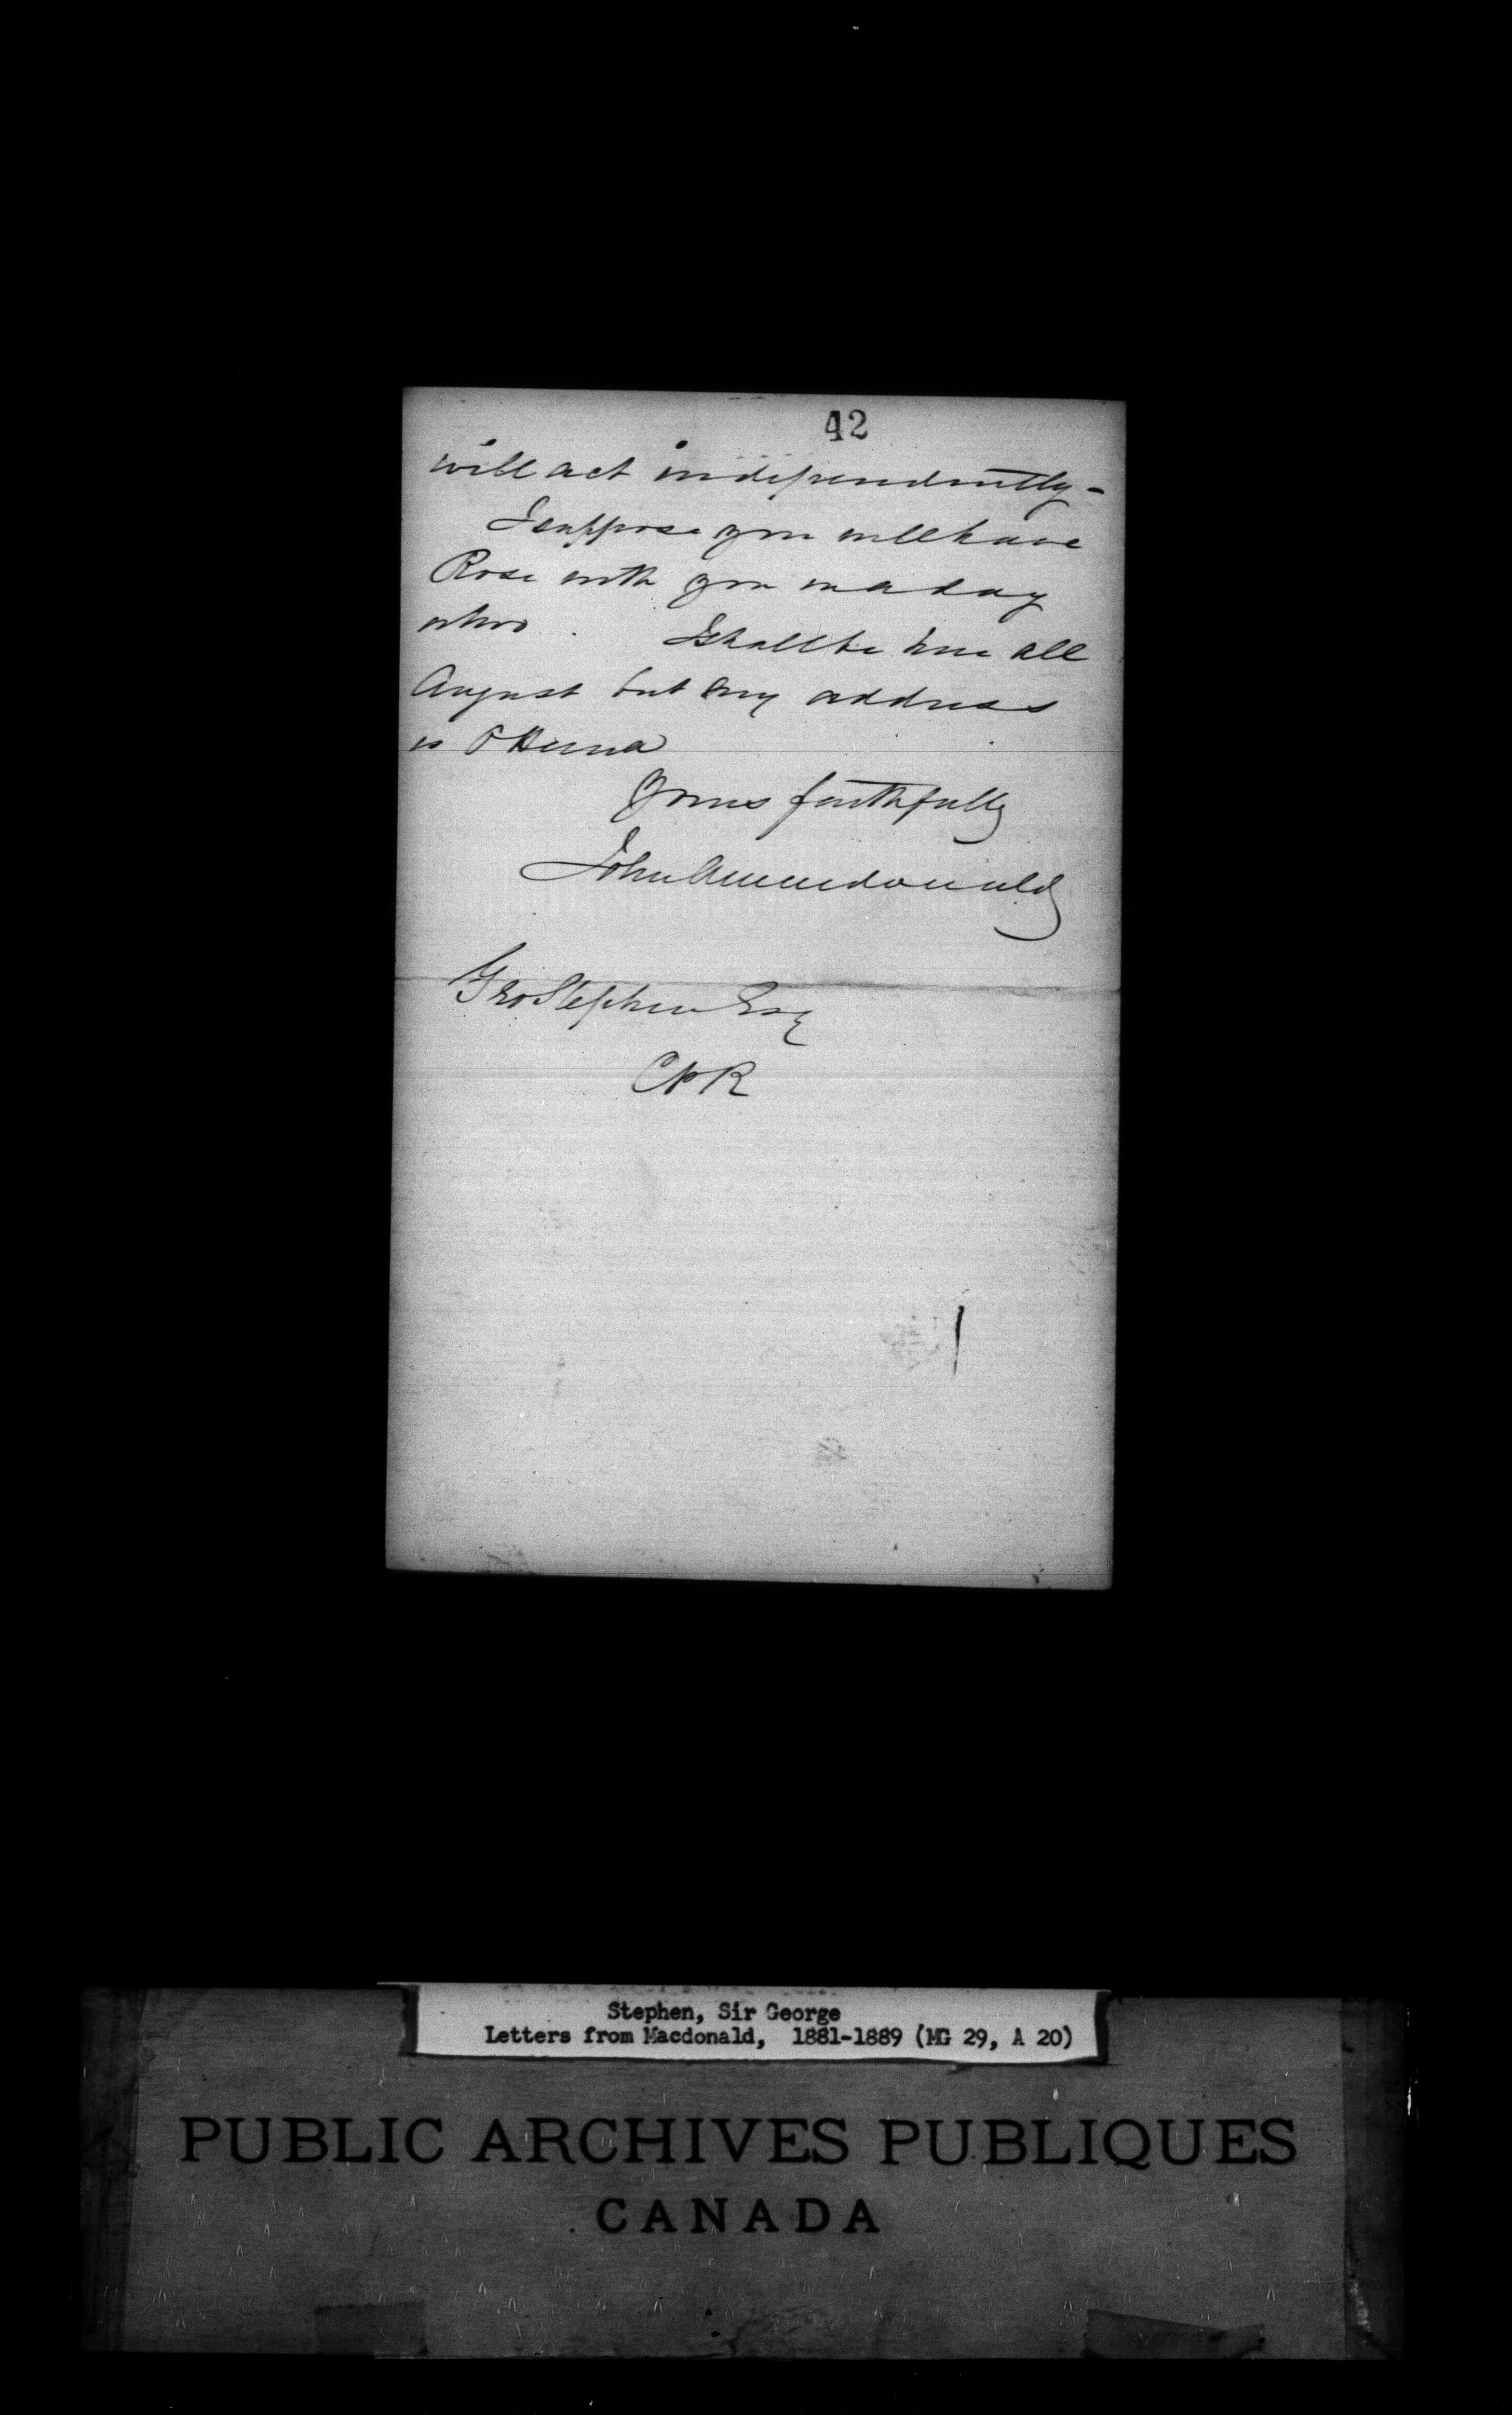 42
will act independently -
I suppose you will have
Rose with you in a day
or two. I shall be here all
August but my address
is Ottawa
Yours faithfully
John A Macdonald
Geo Stephen Esq
CPR
Stephen, Sir George
Letters from Macdonald, 1881-1889 (MG 29, A 20)
PUBLIC ARCHIVES PUBLIQUES
CANADA